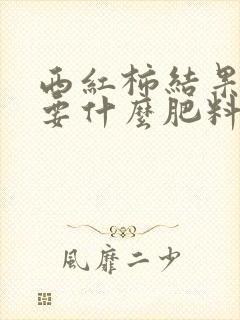 西紅柿結果
要什麼肥料
風靡二少